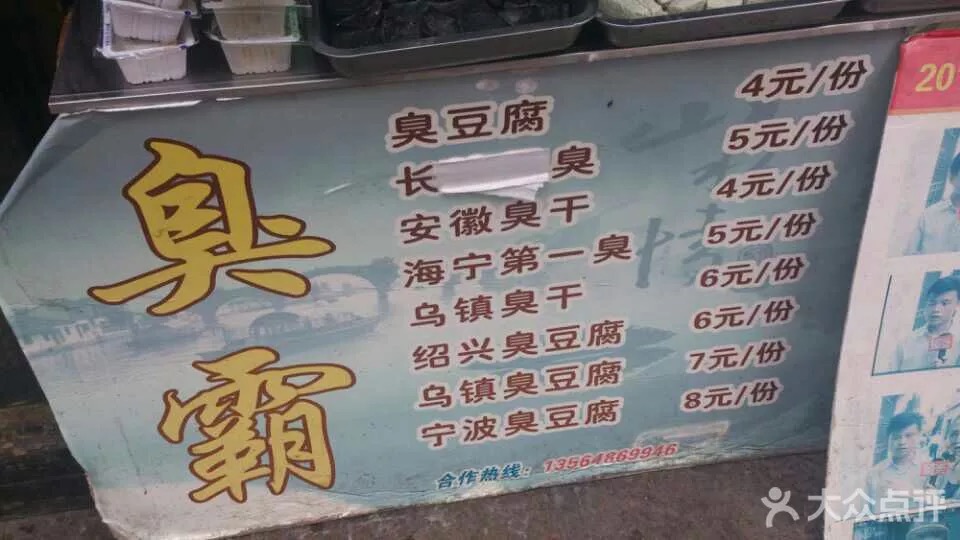 臭霸
臭豆腐 4元/份
长 臭 5元/份
安徽臭干 4元/份
海宁第一臭 5元/份
乌镇臭干 6元/份
绍兴臭豆腐 6元/份
乌镇臭豆腐 7元/份
宁波臭豆腐 8元/份
合作热线：13564869946
201
大众点评